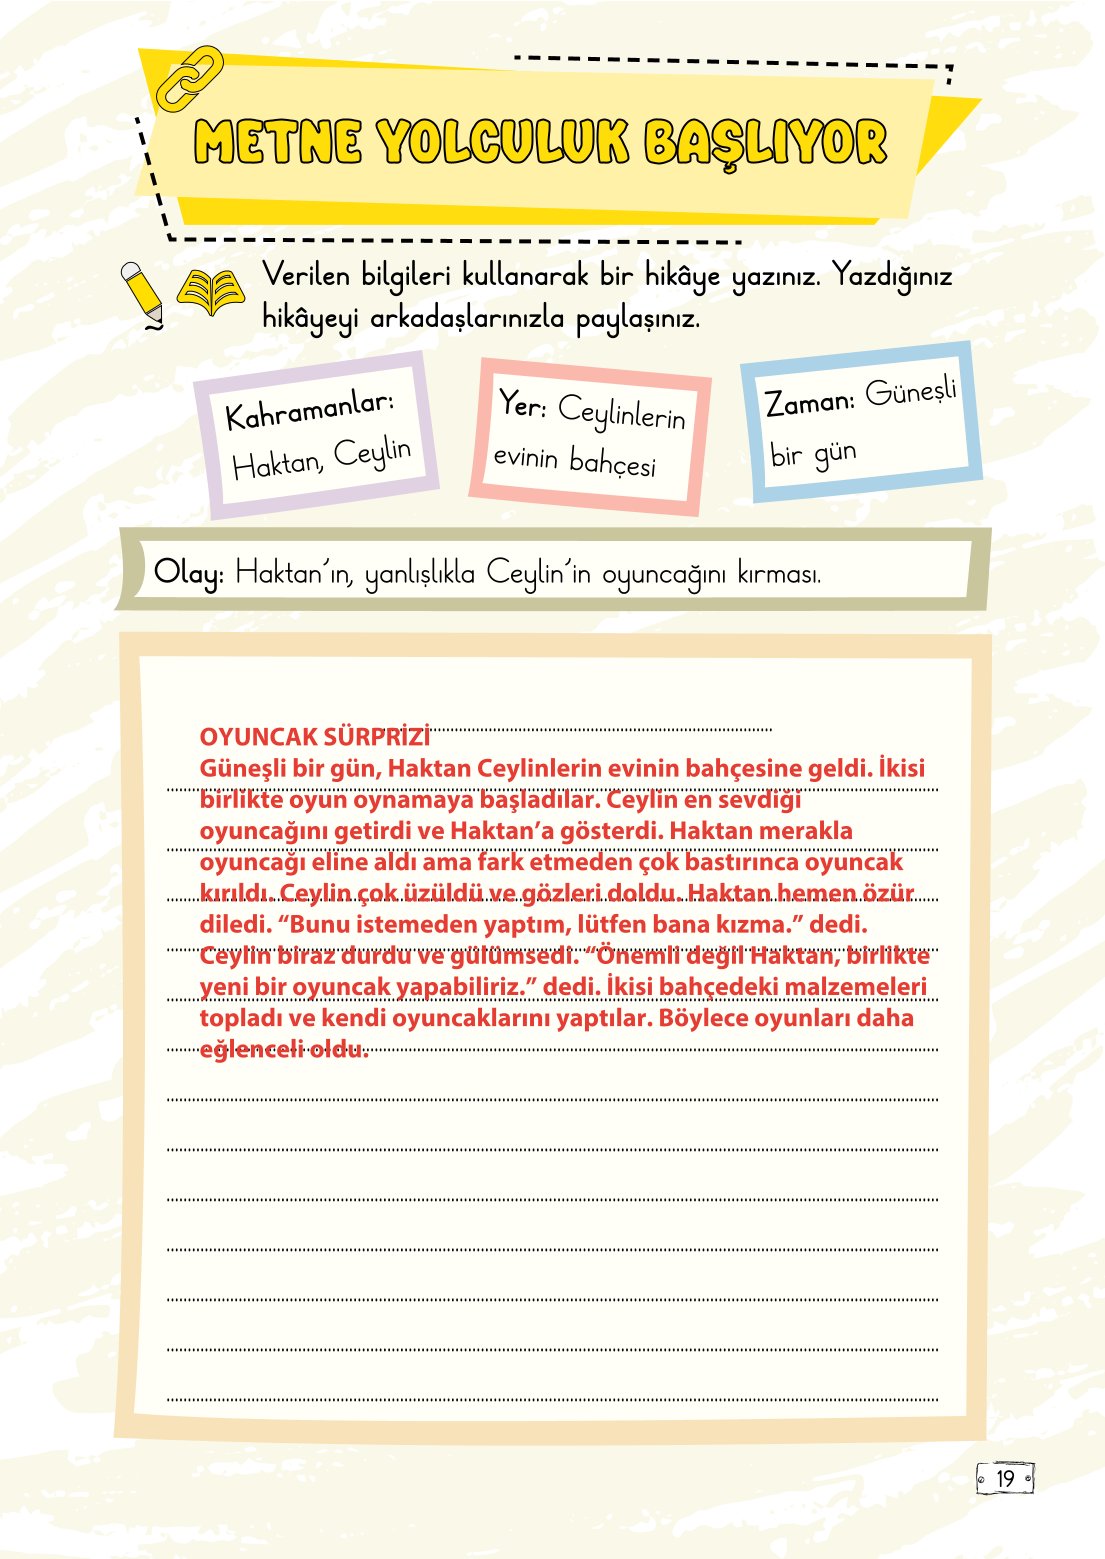 METNE YOLCULUK BAŞLIYOR
Verilen bilgileri kullanarak bir hikâye yazınız. Yazdığınız
hikâyeyi arkadaşlarınızla paylaşınız.
Kahramanlar:
Haktan, Ceylin
Yer: Ceylinlerin
evinin bahçesi
Zaman: Güneşli
bir gün
Olay: Haktan'ın, yanlışlıkla Ceylin'in oyuncağını kırması.
OYUNCAK SÜRPRİZİ
Güneşli bir gün, Haktan Ceylinlerin evinin bahçesine geldi. İkisi
birlikte oyun oynamaya başladılar. Ceylin en sevdiği
oyuncağını getirdi ve Haktan'a gösterdi. Haktan merakla
oyuncağı eline aldı ama fark etmeden çok bastırınca oyuncak
kırıldı. Ceylin çok üzüldü ve gözleri doldu. Haktan hemen özür
diledi. “Bunu istemeden yaptım, lütfen bana kızma.” dedi.
Ceylin biraz durdu ve gülümsedi. “Önemli değil Haktan, birlikte
yeni bir oyuncak yapabiliriz.” dedi. İkisi bahçedeki malzemeleri
topladı ve kendi oyuncaklarını yaptılar. Böylece oyunları daha
eğlenceli oldu.
19